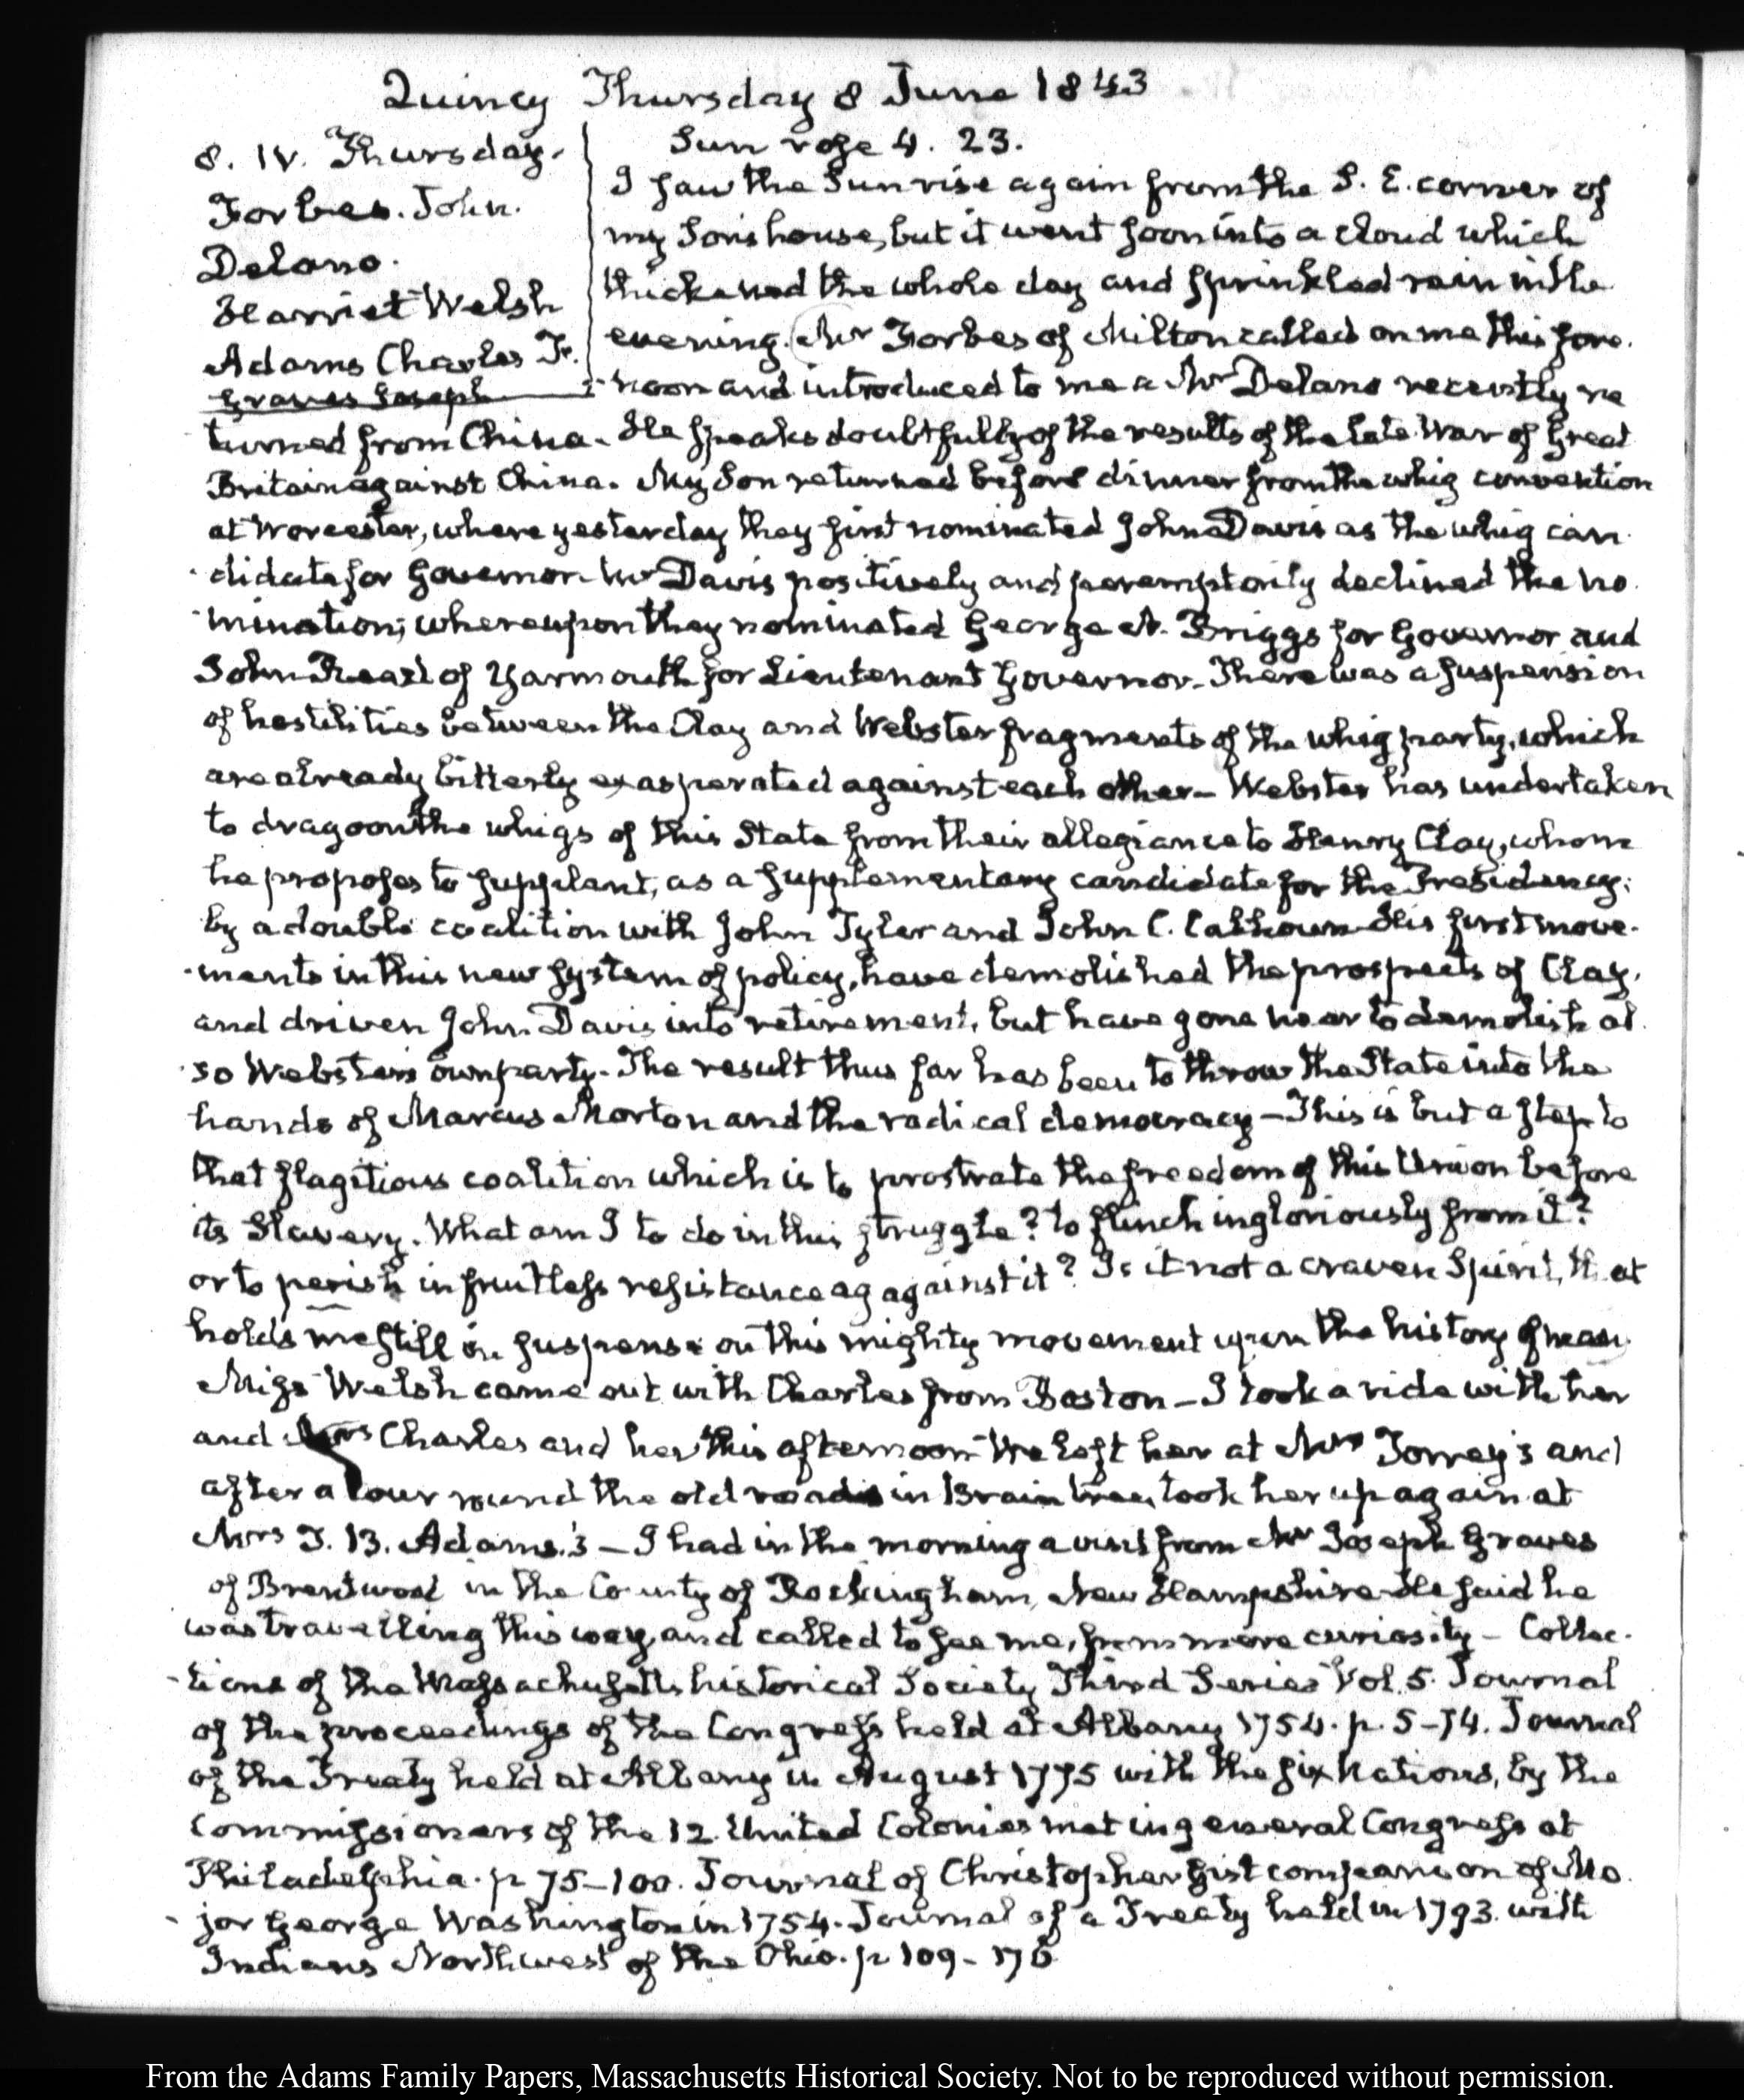 Quincy Thursday 8 June 1843
8. IV. Thursday.
Forbes. John.
Delano.
Harriet Welsh
Adams Charles F.
Graves Joseph
Sun rose 4. 23.
I saw the Sun rise again from the S. E. corner of
my Son's house, but it went soon into a cloud which
thickened the whole day and sprinkled rain in the
evening. Mr Forbes of Milton called on me this fore-
noon and introduced to me a Mr Delano recently re
turned from China. He speaks doubtfully of the results of the late War of Great
Britain against China. My Son returned before dinner from the whig convention
at Worcester, where yesterday they first nominated John Davis as the whig can-
didate for Governor. Mr Davis positively and peremptorily declined the no-
mination; whereupon they nominated George N. Briggs for Governor and
John Reed of Yarmouth for Lieutenant Governor. There was a suspension
of hostilities between the Clay and Webster fragments of the whig party, which
are already bitterly exasperated against each other— Webster has undertaken
to dragoon the whigs of this State from their allegiance to Henry Clay, whom
he proposes to supplant, as a supplementary candidate for the Presidency;
by a double coalition with John Tyler and John C. Calhoun. His first move-
ments in this new system of policy, have demolished the prospects of Clay,
and driven John Davis into retirement, but have gone near to demolish al
so Webster's own party. The result thus far has been to throw the State into the
hands of Marcus Morton and the radical democracy— This is but a step to
that flagitious coalition which is to prostrate the freedom of this Union before
its Slavery. What am I to do in this struggle? to flinch ingloriously from it?
or to perish in fruitless resistance ag against it? Is it not a craven Spirit, that
holds me still in suspense on this mighty movement upon the history of man
Miss Welsh came out with Charles from Boston— I took a ride with her
and Mrs Charles and her this afternoon We left her at Mrs Torrey's and
after a tour round the old roads in Braintree, took her up again at
Mrs T. B. Adams's— I had in the morning a visit from Mr Joseph Graves
of Brentwood in the County of Rockingham, New Hampshire He said he
was travelling this way, and called to see me, from mere curiosity— Collec-
tions of the Massachusetts historical Society Third Series Vol. 5. Journal
of the proceedings of the Congress held at Albany 1754. p. 5–74. Journal
of the Treaty held at Albany in August 1775 with the six Nations, by the
Commissioners of the 12 United Colonies met in general Congress at
Philadelphia. p 75–100. Journal of Christopher Gist companion of Ma
jor George Washington in 1754. Journal of a Treaty held in 1793. with
Indians Northwest of the Ohio. p 109–176
From the Adams Family Papers, Massachusetts Historical Society. Not to be reproduced without permission.